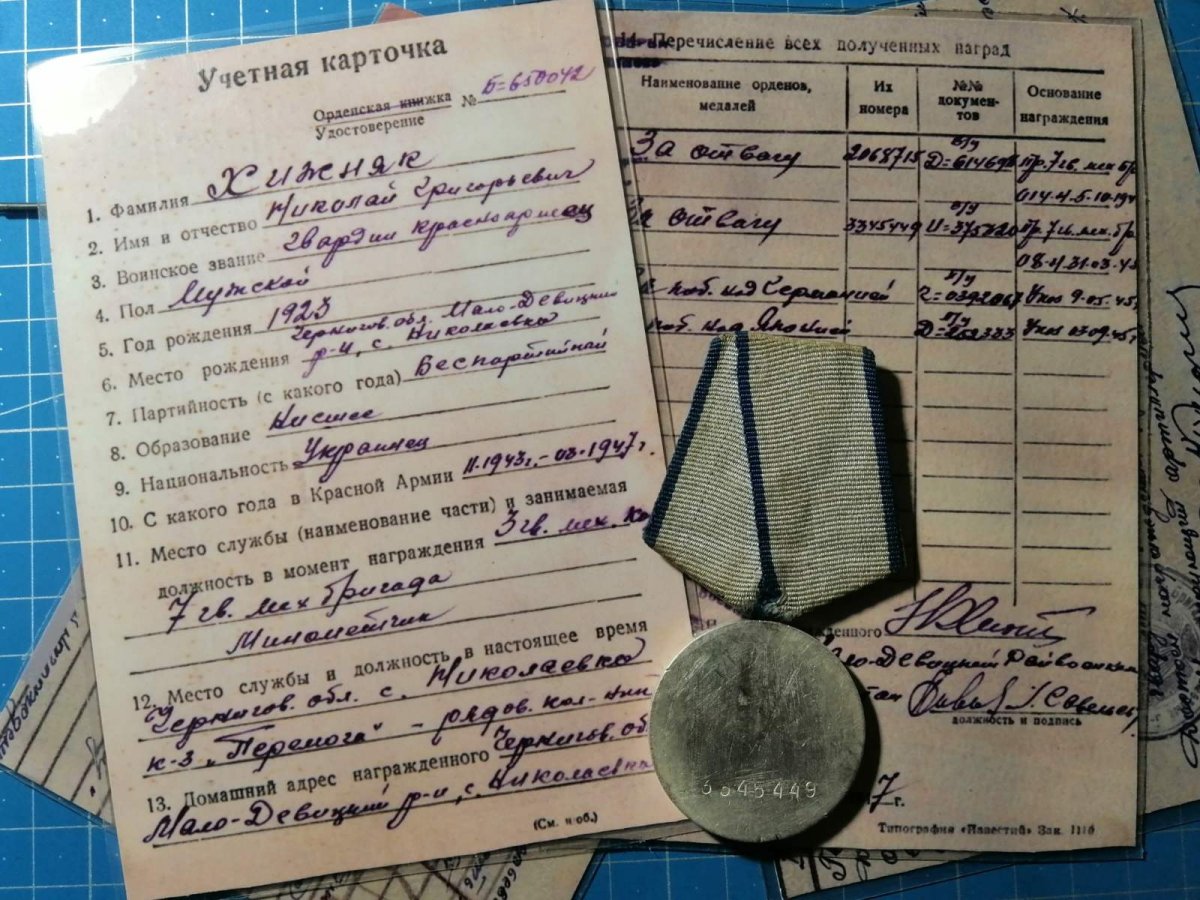 Учетная карточка
Орденская книжка
Удостоверение № Б=650042
1. Фамилия Хижняк
2. Имя и отчество Николай Григорьевич
3. Воинское звание Гвардии красноармеец
4. Пол Мужской
5. Год рождения 1923
6. Место рождения Чернигов. обл. Мало-Девицкий
р-н, с. Николаевка
7. Партийность (с какого года) Беспартийный
8. Образование Низшее
9. Национальность Украинец
10. С какого года в Красной Армии 11.1943г.-03.1947г.
11. Место службы (наименование части) и занимаемая
должность в момент награждения 3 гв. мех. ко
7 гв. мех бригада
Минометчик
12. Место службы и должность в настоящее время
Чернигов. обл. с. Николаевка
к-з „Перемога" - рядов. кол-ник
13. Домашний адрес награжденного Чернигов. об
Мало-Девицкий р-н, с. Николаевка
(См. н об.)
14. Перечисление всех полученных наград
Наименование орденов, медалей
Их номера
№№ докумен-тов
Основание награждения
За отвагу 2068715 в/у Д=614698 Пр. 7 гв. мех бр
014-4.5-10-194
За отвагу 3345449 в/у 375820 Пр. 7 гв. мех. бр.
08-н 31-03-45
поб. над Германией в/у 0392067 Указ 9-05.45г
поб. над Японией в/у Указ 30.09.45г
жденного
ло-Девицкий Райвоенком
должность и подпись
7 г.
Типография «Известий» Зак. 1116
3345449